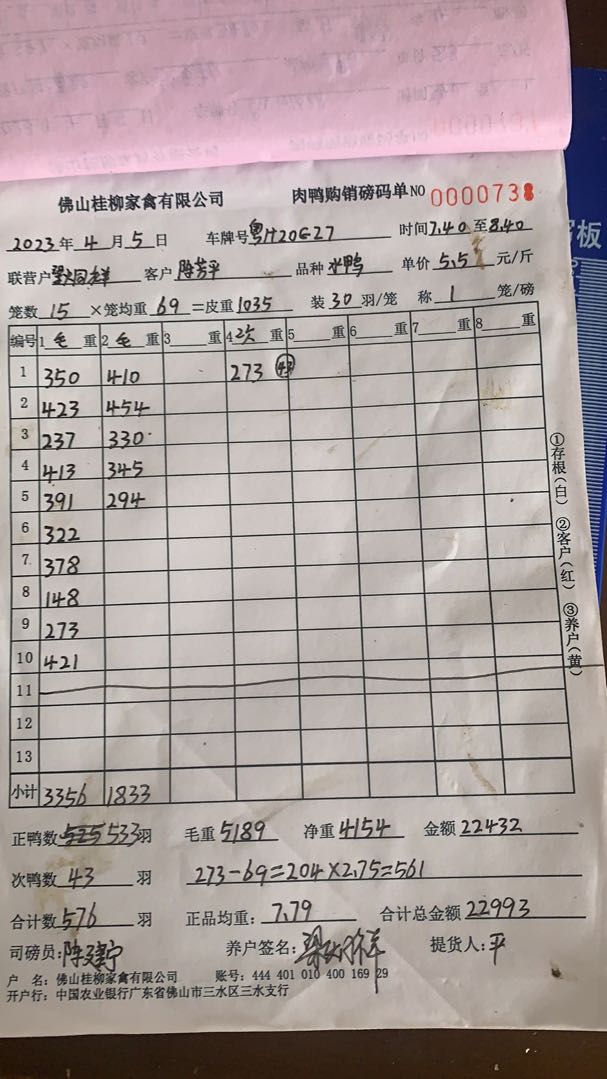 佛山桂柳家禽有限公司 肉鸭购销磅码单NO 0000738
2023年4月5日 车牌号粤H20G27 时间7.40至8.40
联营户 客户陈芳平 品种 鸭 单价5.5元/斤
笼数15×笼均重69=皮重1035 装30羽/笼 称1笼/磅
编号 1毛重 2毛重 3重 4次重 5重 6重 7重 8重
1 350 410 273 43
2 423 454
3 237 330
4 413 345
5 391 294
6 322
7 378
8 148
9 273
10 421
11
12
13
小计 3356 1833
①存根(白) ②客户(红) ③养户(黄)
正鸭数525 533羽 毛重5189 净重4154 金额22432
次鸭数43羽 273-69=204×2.75=561
合计数576羽 正品均重:7.79 合计总金额22993
司磅员:陈建宁 养户签名: 提货人:平
户 名:佛山桂柳家禽有限公司 账号:444 401 010 400 169 29
开户行:中国农业银行广东省佛山市三水区三水支行
板